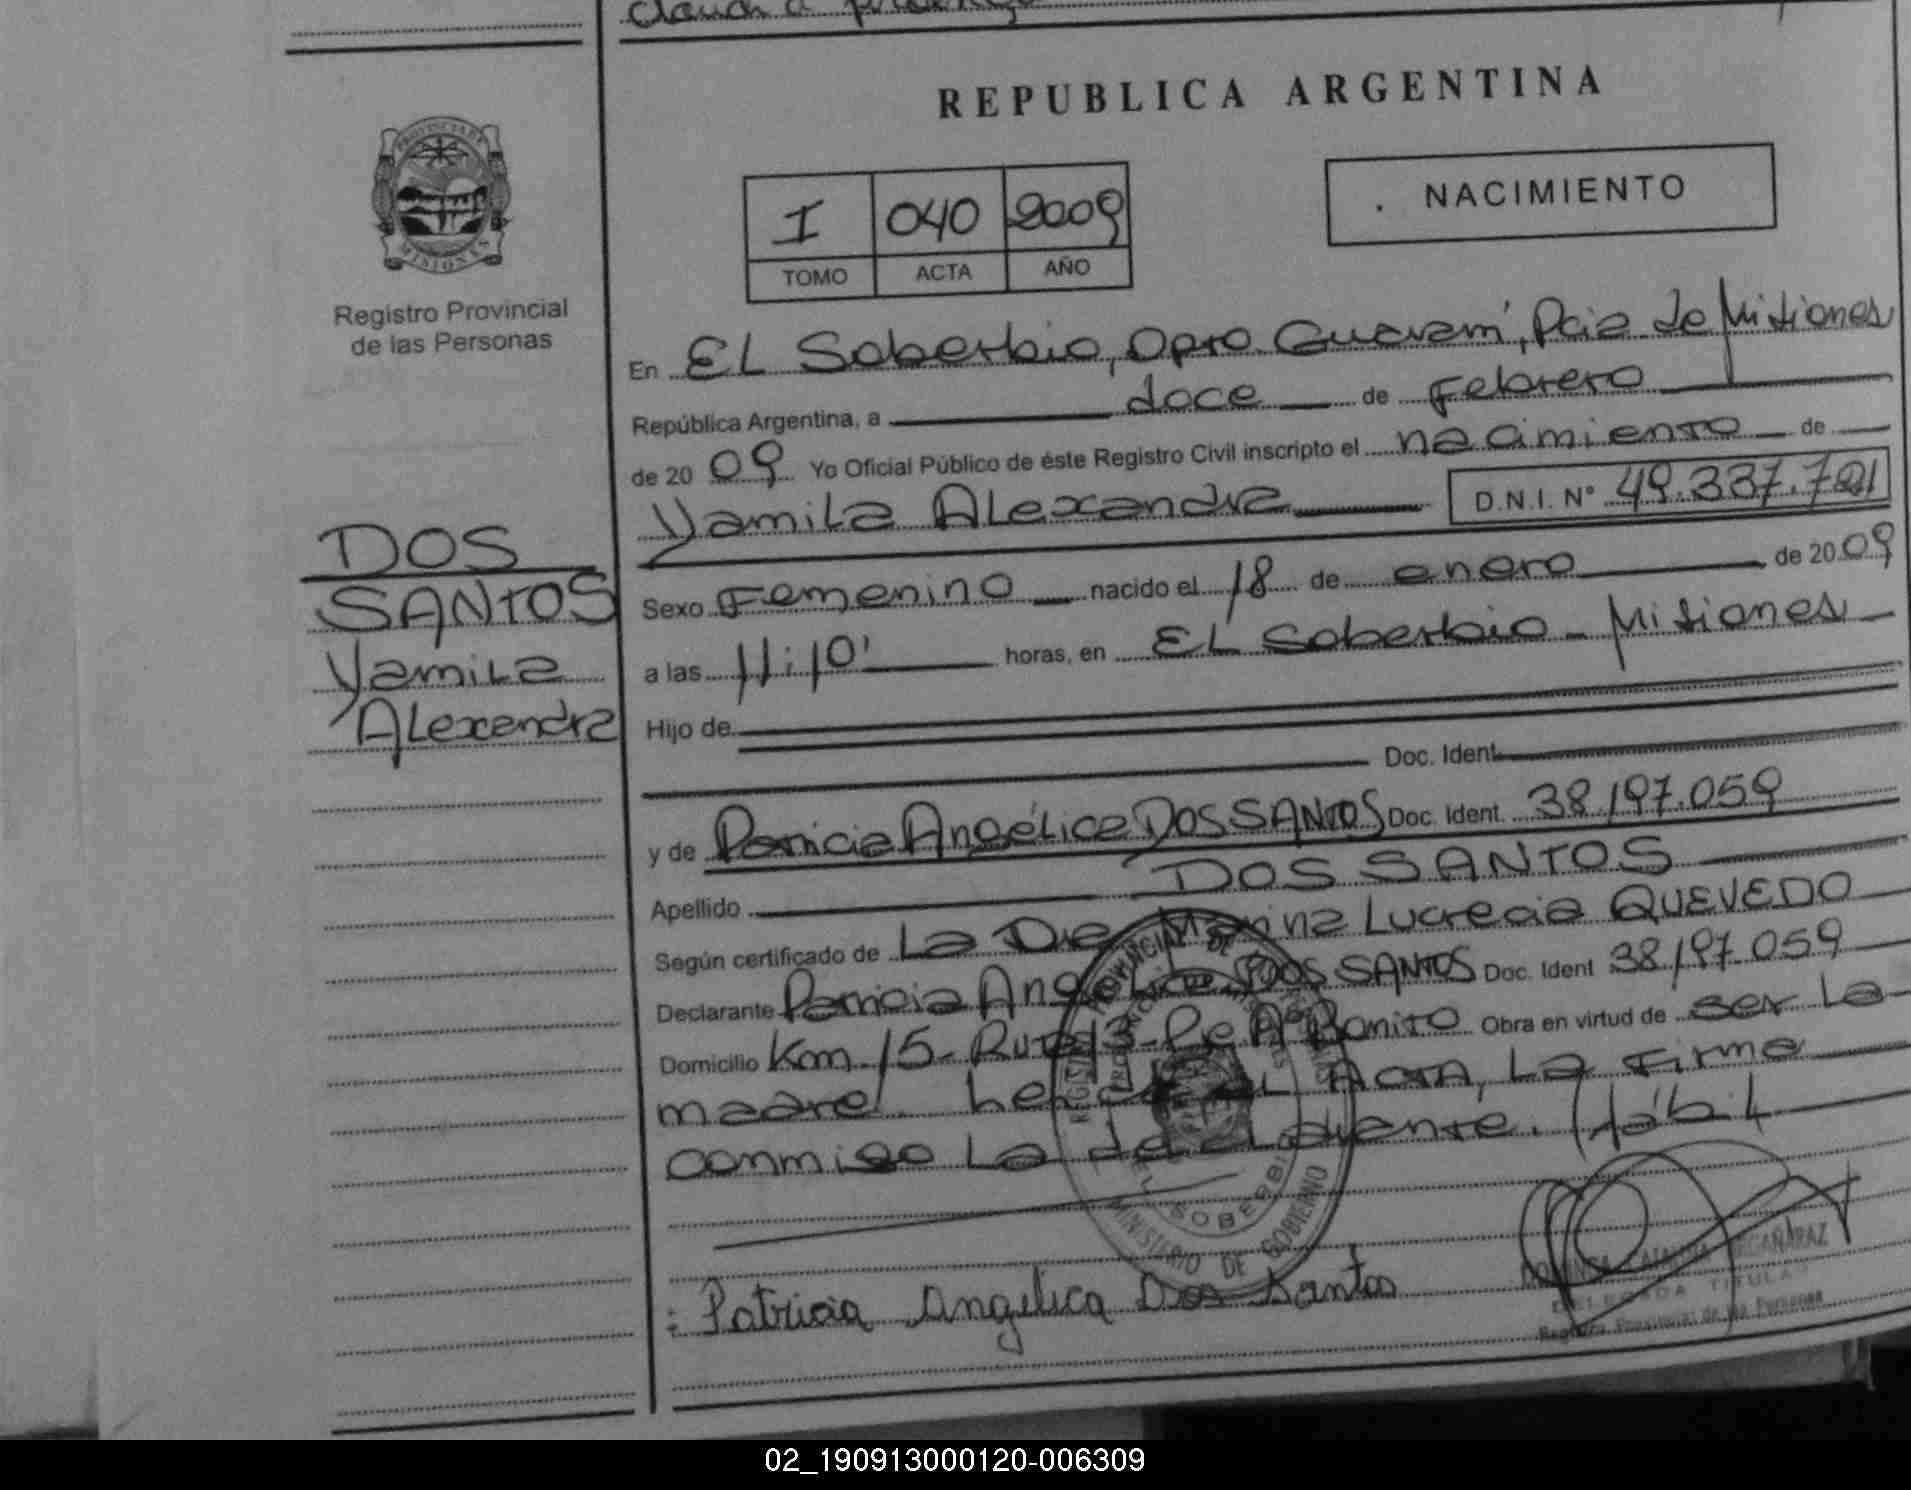 REPUBLICA ARGENTINA
PROVINCIA DE
MISIONES
Registro Provincial
de las Personas
I 040 2009
TOMO ACTA AÑO
NACIMIENTO
En EL Soberbio, Dpto. Guaraní, Pcia de Misiones
República Argentina, a doce de Febrero
de 20 09 Yo Oficial Público de éste Registro Civil inscripto el nacimiento de
Yamila Alexandra D.N.I. Nº 49.337.721
DOS
SANTOS
Yamila
Alexandra
Sexo Femenino nacido el 18 de enero de 20 09
a las 11:10' horas, en EL Soberbio - Misiones
Hijo de
Doc. Ident.
y de Patricia Angélica DOS SANTOS Doc. Ident. 38.197.059
Apellido DOS SANTOS
Según certificado de La Dra Marina Lucrecia QUEVEDO
Declarante Patricia Angélica DOS SANTOS Doc. Ident 38.197.059
Domicilio Km 15- Ruta 13- Pje Aº Bonito Obra en virtud de ser la
madre. Leída el Acta, La Firma
conmigo La declarante. Hábil
EL SOBERBIO
MINISTERIO DE GOBIERNO
: Patricia Angelica Dos Santos
DELEGADA TITULAR
Registro Provincial de las Personas
02_190913000120-006309